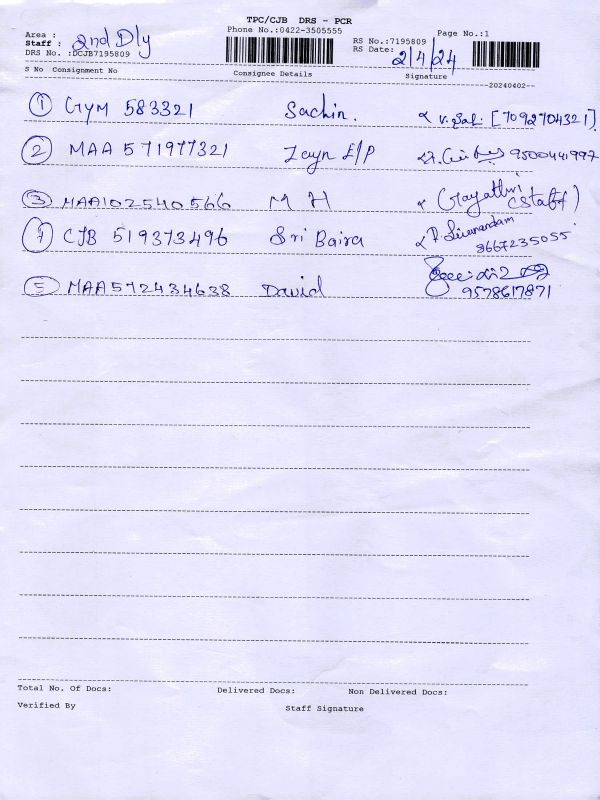 TPC/CJB DRS - PCR
Area :
Phone No.:0422-3505555
Page No.:1
Staff : 2nd Dly
RS No.:7195809
DRS No. :DCJB7195809
RS Date: 2/4/24
S No Consignment No Consignee Details Signature
--20240402--
1 GYM 583321 Sachin. [7092704321]
2 MAA 571977321 Zayn E/P 9500441997
3 MAA102540566 M H Gayathri (Staff)
4 CJB 519373496 Sri Baira P. Sivanandam
8667235055
5 MAA572434638 David
9578617871
Total No. Of Docs: Delivered Docs: Non Delivered Docs:
Verified By Staff Signature